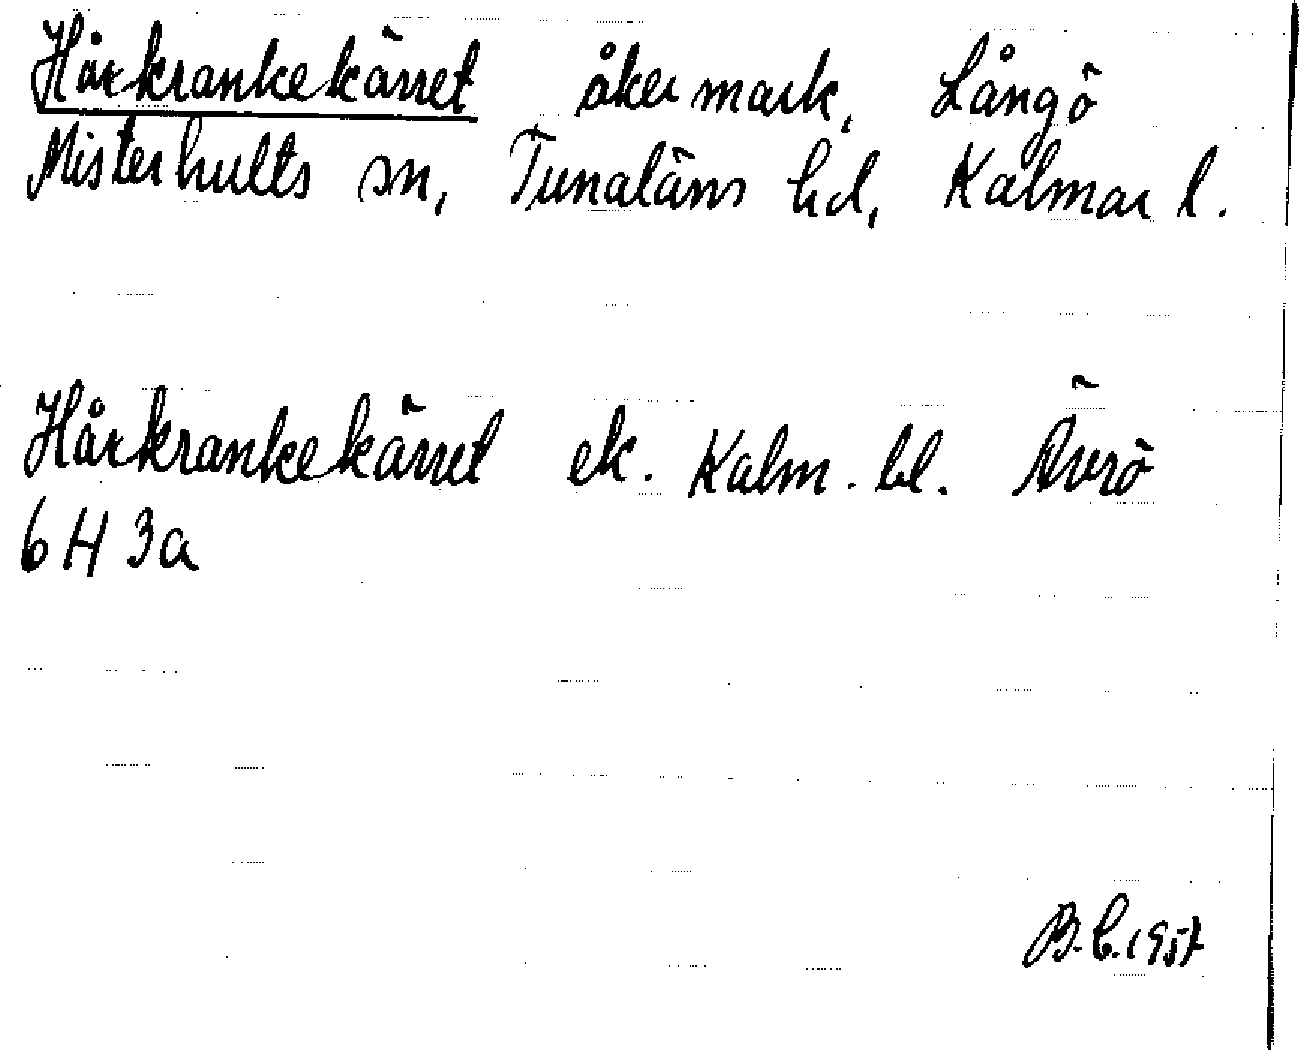 Hårkrankekärret åkermark, Långö
Misterhults sn, Tunaläns hd, Kalmar l.
Hårkrankekärret ek. Kalm. bl. Ävrö
6 H 3a
B.C. 1957